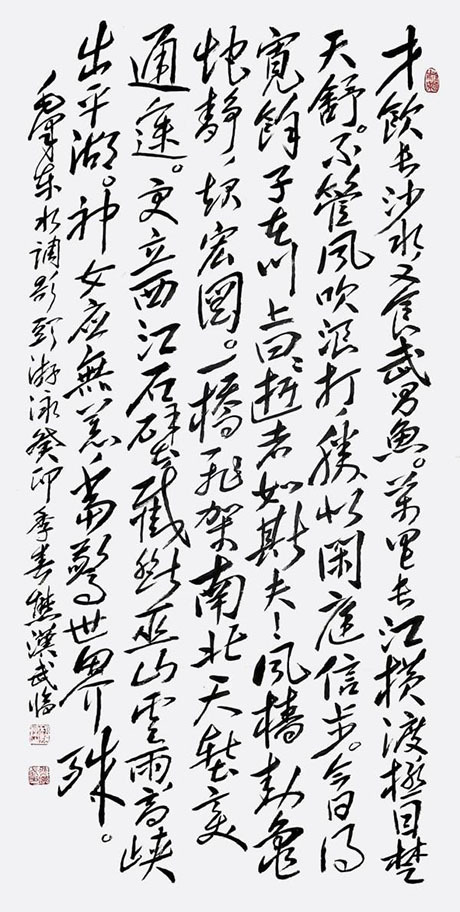 才飲長沙水、又食武昌魚。萬里長江横渡極目楚
天舒。不管風吹浪打、勝似閑庭信步。今日得
寬餘子在川上曰、逝者如斯夫、風檣動龜
蛇靜、起宏圖。一橋飛架南北天塹變
通途。更立西江石壁截斷巫山雲雨、高峡
出平湖。神女應無恙、當驚世界殊。
毛澤東水調歌頭游泳癸卯季春熊漢武臨